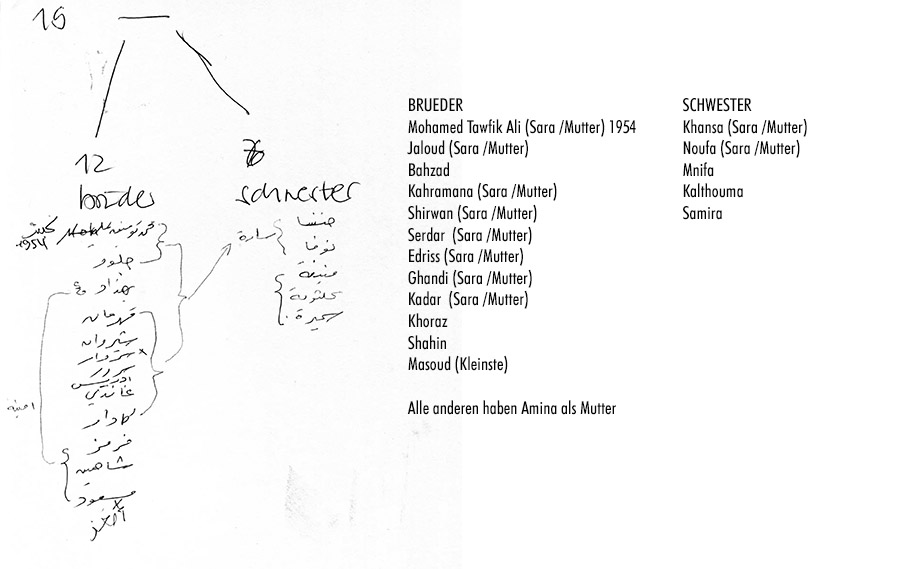 15
12
brüder
schwester
1954
جلور
بهزاد
قهرمانه
شيروان
سردار
سرور
ادريس
غاندي
كادار
شاهين
مسعود
امينة
سارة
خنسا
نوفا
منيفة
كلثومة
سميرة
BRUEDER
Mohamed Tawfik Ali (Sara /Mutter) 1954
Jaloud (Sara /Mutter)
Bahzad
Kahramana (Sara /Mutter)
Shirwan (Sara /Mutter)
Serdar (Sara /Mutter)
Edriss (Sara /Mutter)
Ghandi (Sara /Mutter)
Kadar (Sara /Mutter)
Khoraz
Shahin
Masoud (Kleinste)
Alle anderen haben Amina als Mutter
SCHWESTER
Khansa (Sara /Mutter)
Noufa (Sara /Mutter)
Mnifa
Kalthouma
Samira